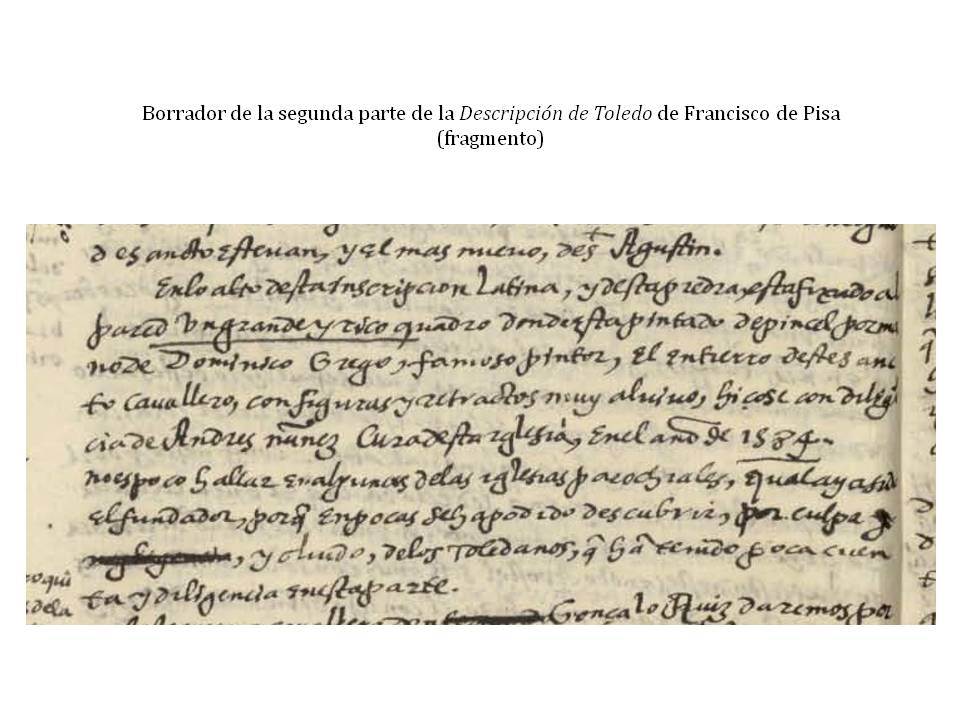 Borrador de la segunda parte de la Descripción de Toledo de Francisco de Pisa
(fragmento)
de sancto estevan, y el mas nuevo, de s.t Agustin.
En lo alto desta inscripcion Latina, y desta piedra, esta fixado al
pared Un grande y rico quadro donde esta pintado de pincel por ma
no de Dominico Grego, famoso pintor, el entierro deste sanc
to cavallero, con figuras y retractos muy al vivo, hiçose con dilig
cia de Andres nuñez Cura desta iglesia, en el año de 1584.
no es poco hallar en algunas de las iglesias parochiales, qual aya sid
el fundador, porq̄ en pocas se ha podido descubrir, por culpa y
negligencia, y oluido, de los Toledanos, q̄ hā tenido poca cuen
ta y diligencia en esta parte.
Gonçalo Ruiz daremos por